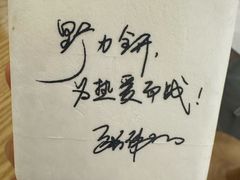 野力全开，
为热爱而战！